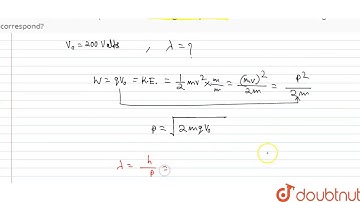 correspond?
V₀ = 200 Volts , λ = ?
W = qV₀ = K.E. = 1/2 mv² × m/m = (mv)²/2m = p²/2m
p = √2mqV₀
λ = h/p =
doubtnut